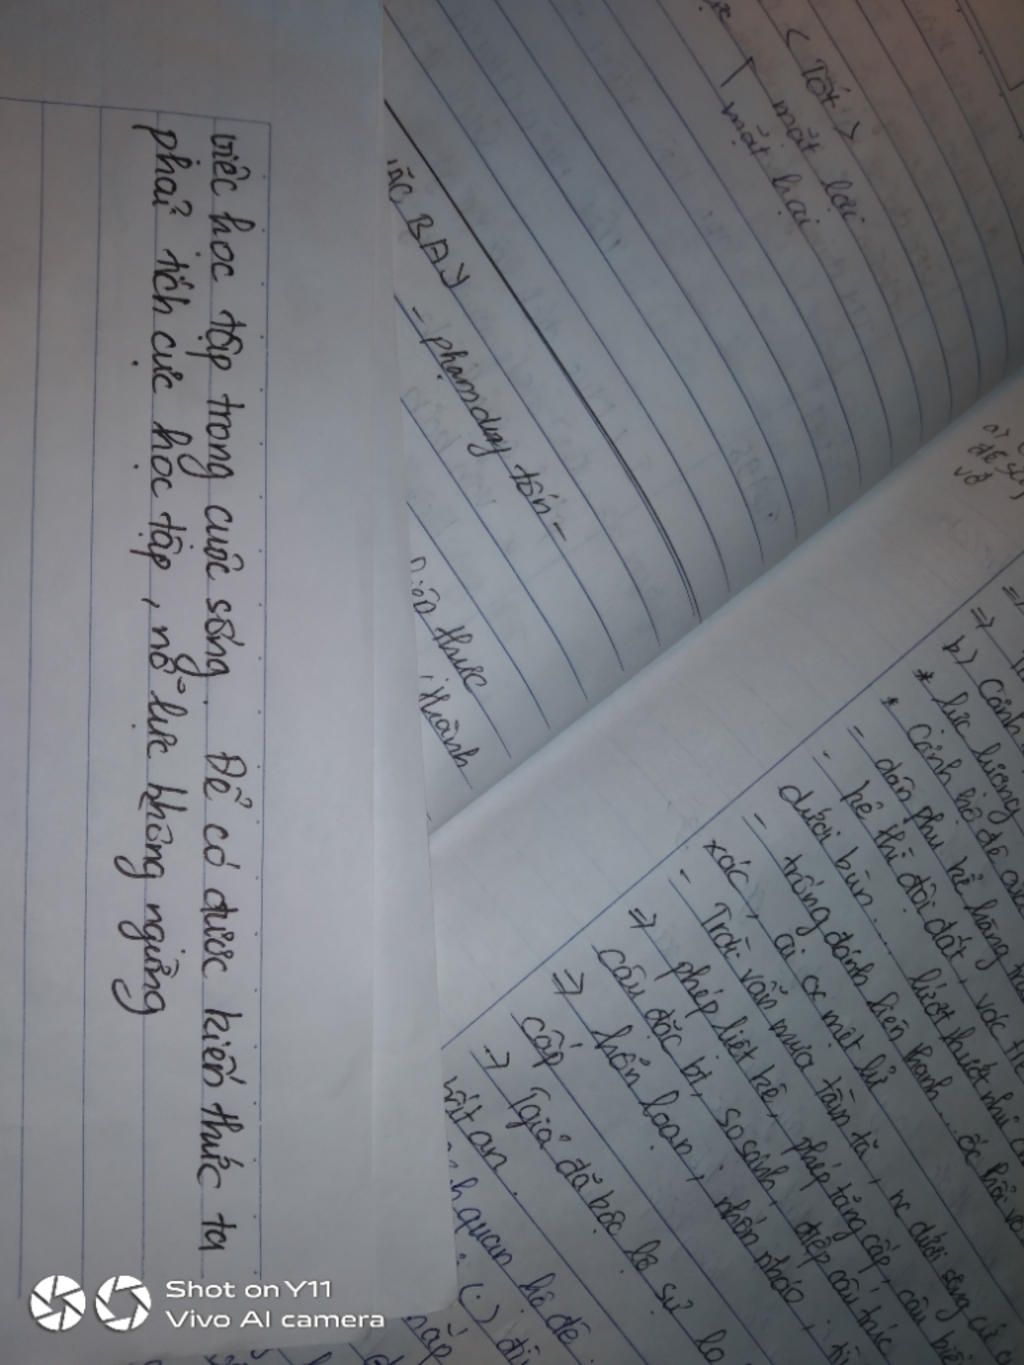 việc học tập trong cuộc sống. Để có được kiến thức ta
phải tích cực học tập, nỗ lực không ngừng
< Tốt >
mặt lợi
mặt hại
BAY
- phạm duy tốn -
thức
thành
b) Cảnh
* lực lượng
* cảnh hộ đê
- dân phu kẻ hàng
- kẻ thì đội đất, vác
dưới bùn... lướt thướt như
- trống đánh liên thanh... ốc
xác, ai cx mệt lử
- Trời vẫn mưa tầm tã, nc dưới sông cứ
=> phép liệt kê, phép tăng cấp, câu
câu đặc bị, so sánh, điệp cấu trúc
=> hỗn loạn, nhốn nháo,
cấp
=> Tgiả đã bộc lộ sự lo
quan hộ đê
Shot on Y11
Vivo AI camera